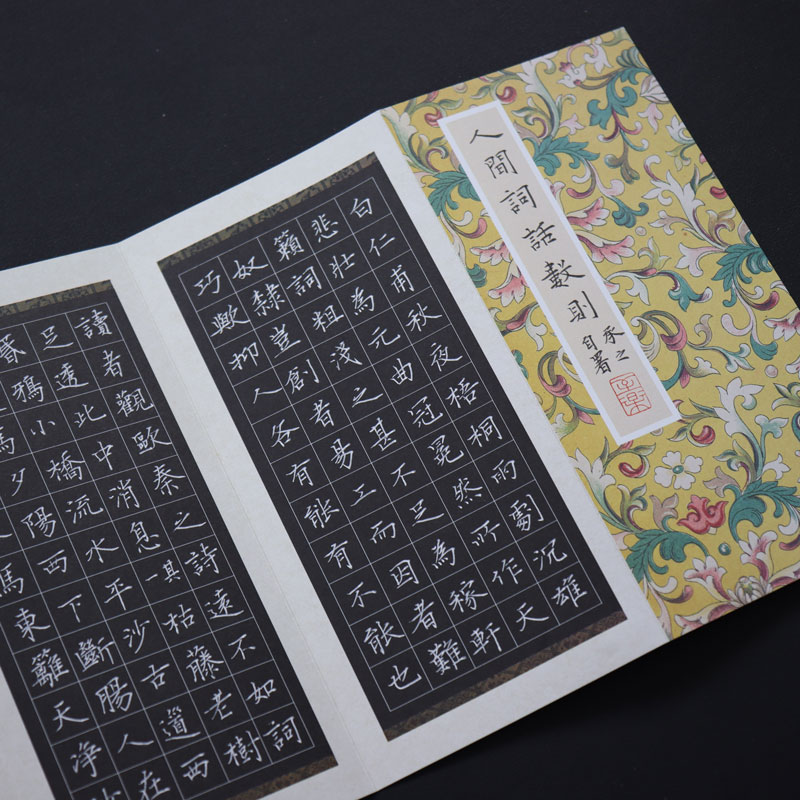 人間詞話數則
承之
自署
白仁甫秋夜梧桐雨劇沉雄
悲壯為元曲冠冕然所作天
籟詞粗淺之甚不足為稼軒
奴隸豈創者易工而因者難
巧歟抑人各有能有不能也
讀者觀歐秦之詩遠不如詞
足透此中消息其一枯藤老樹
鴉小橋流水平沙古道西
夕陽西下斷腸人在
馬東籬天淨沙